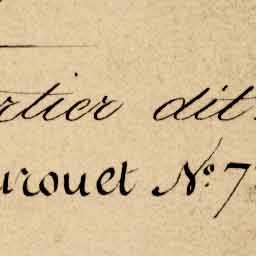 rtier dit
urouet No 7